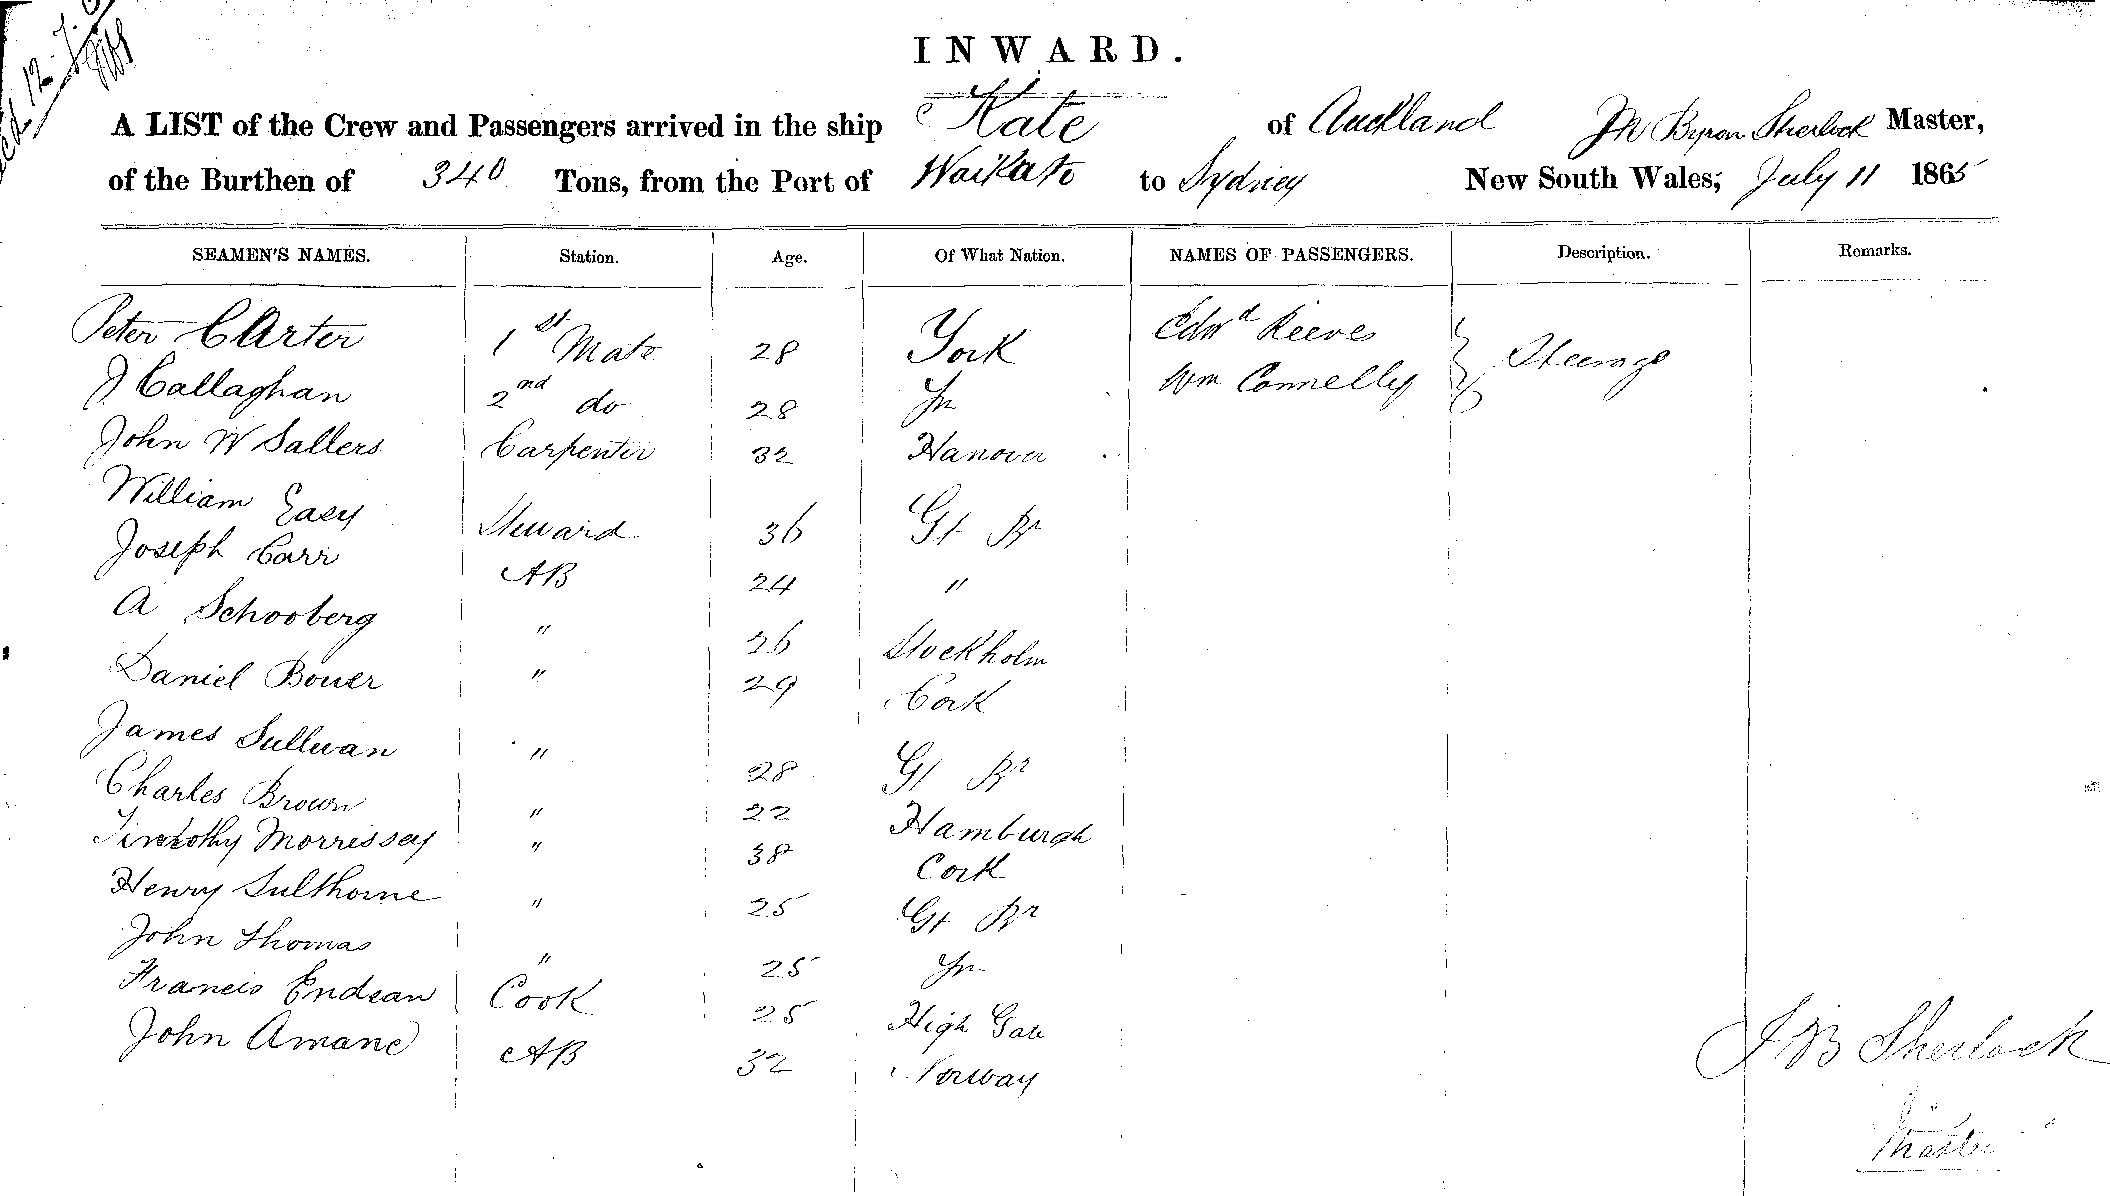 12
INWARD.
A LIST of the Crew and Passengers arrived in the ship Kate of Auckland Jn Byron Sherlock Master,
of the Burthen of 340 Tons, from the Port of Waikato to Sydney New South Wales, July 11 1865
SEAMEN'S NAMES. Station. Age. Of What Nation. NAMES OF PASSENGERS. Description. Remarks.
Peter Carter 1st Mate 28 York Edwd Reeves Steerage
J Callaghan 2nd do 28 Wm Connelly
John W Sallers Carpenter 32 Hanover
William Eaey Steward 36 Gt Br
Joseph Carr AB 24 "
A Schooberg " 26 Stockholm
Daniel Bouer " 29 Cork
James Sullivan " 28 Gt Br
Charles Brown " 22 Hamburgh
Timothy Morrissey " 38 Cork
Henry Sulthorne " 25 Gt Br
John Thomas " 25
Francis Endean Cook 25 High Gate
John Amane AB 32 Norway
J B Sherlock
Master